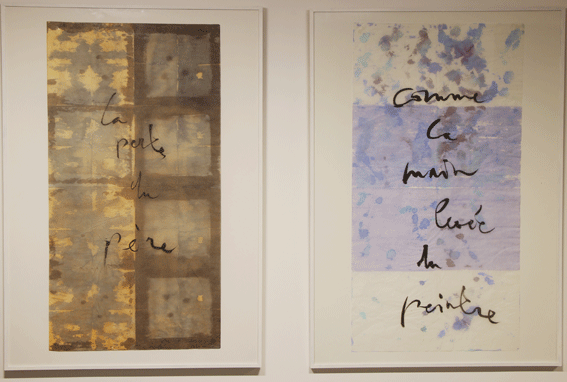 La
porte
du
père
comme
la
main
levée
du
peintre